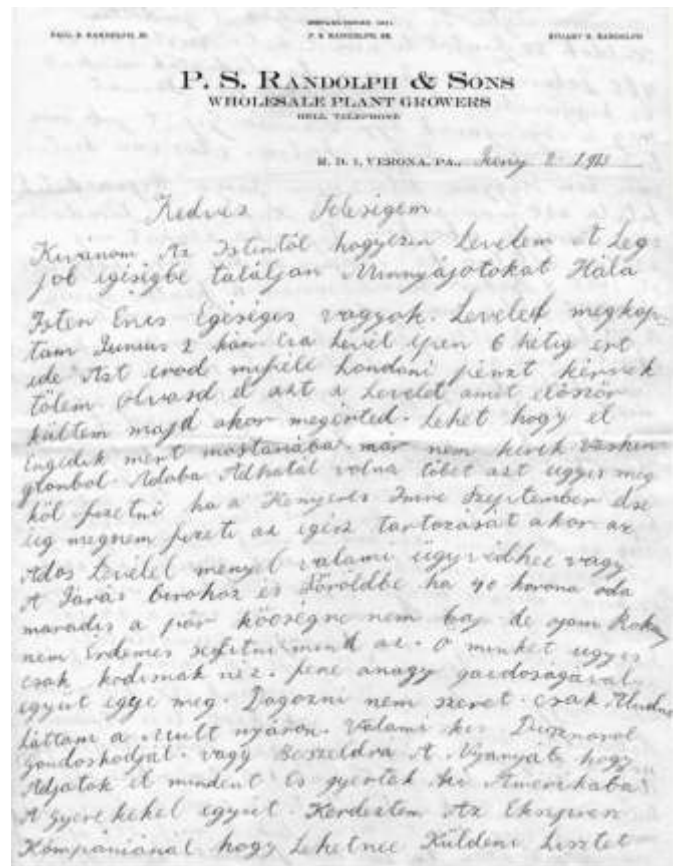 PAUL S. RANDOLPH, JR.
P. S. RANDOLPH, SR.
STUART S. RANDOLPH
P. S. RANDOLPH & SONS
WHOLESALE PLANT GROWERS
BELL TELEPHONE
R. D. 1, VERONA, PA.,
Kedvés Feleségem
Kivánom Az Istentöl hogyezen Levelem A Leg
job egiségbe találjan Minnyájotokat Hála
Isten Enis Egiséges vagyok. Leveled megkap
tam Junius 2 kán Era levél épen 6 hétig ért
ide Ast irod mifèle londoni pénzt kérnek
tölem olvasd el azt a Levelet amit elöször
kültem majd akor megérted. Lehet hogy el
Engedik mert mostanába már nem kérik Vashin
gtonbol. Adoba Adhatál volna töbet azt ugyis meg
köl fizetni ha a Kenyeres Imre Szeptember
ig megnem fizeti az egisz tartozását akor az
Ados Levelel menyel valami ügyvédhez vagy
A Járás birohoz és ha 40 korona oda
maradis a pör kööségre nem baj de ojam
nem Erdemes segitni mind az. O minket ugyis
csak kodisnak néz. fene anagy gazdoságával
egyut egye meg. Dogozni nem szeret csak
láttam a Mult nyáron. Valami kis Disznorol
gondoskodjál vagy Beszeldra A Nyanyát hogy
Adjatok el mindent és gyertek ki Amerikába
A gyerekekel egyut. Kerdeztem Az
Kompániánál hogy Lehetnee Küldeni Lisztet